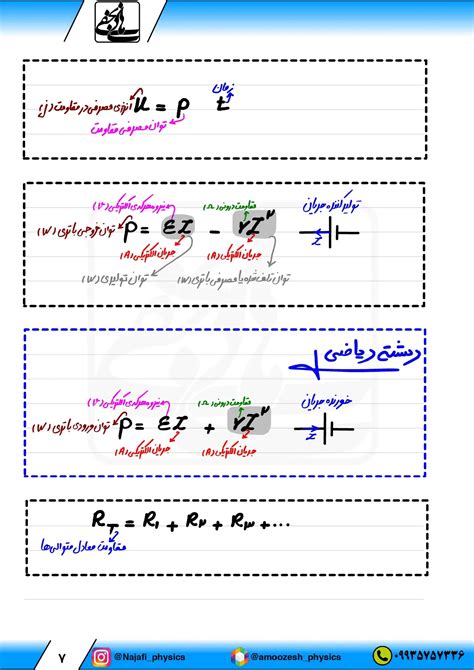 زمان
انرژی مصرفی در مقاومت (J) U = P t
توان مصرفی مقاومت
تولیدکننده جریان
نیرو محرکه‌ی الکتریکی (V) مقاومت درونی (Ω)
توان خروجی باتری (W) P = εI - rI²
I
جریان الکتریکی (A) جریان الکتریکی (A)
توان تولیدی (W) توان تلف شده یا مصرفی باتری (W)
رشته ریاضی
خورنده جریان
نیرو محرکه‌ی الکتریکی (V) مقاومت درونی (Ω)
توان ورودی باتری (W) P = εI + rI²
I
جریان الکتریکی (A) جریان الکتریکی (A)
R_T = R₁ + R₂ + R₃ + ...
مقاومت معادل متوالی‌ها
۷ @Najafi_physics @amoozesh_physics ۰۹۹۳۵۷۵۷۳۳۶